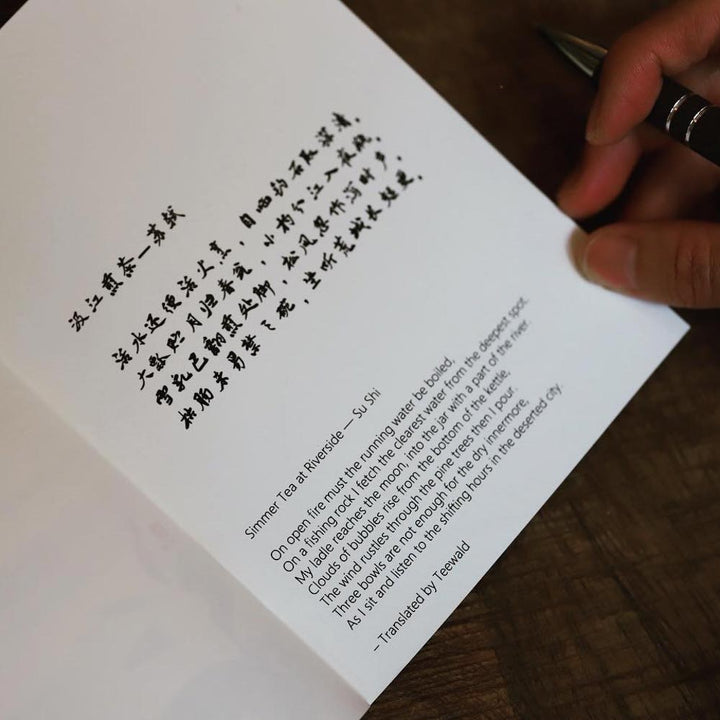 汲江煎茶—苏轼
活水还便活火烹，自临钓石取深清，
大瓢贮月归春瓮，小杓分江入夜瓶，
雪乳已翻煎处脚，松风忽作泻时声，
枯肠未易禁三碗，坐听荒城长短更，
Simmer Tea at Riverside — Su Shi
On open fire must the running water be boiled,
On a fishing rock I fetch the clearest water from the deepest spot.
My ladle reaches the moon, into the jar with a part of the river.
Clouds of bubbles rise from the bottom of the kettle,
The wind rustles through the pine trees then I pour.
Three bowls are not enough for the dry innermore,
As I sit and listen to the shifting hours in the deserted city.
– Translated by Teewald